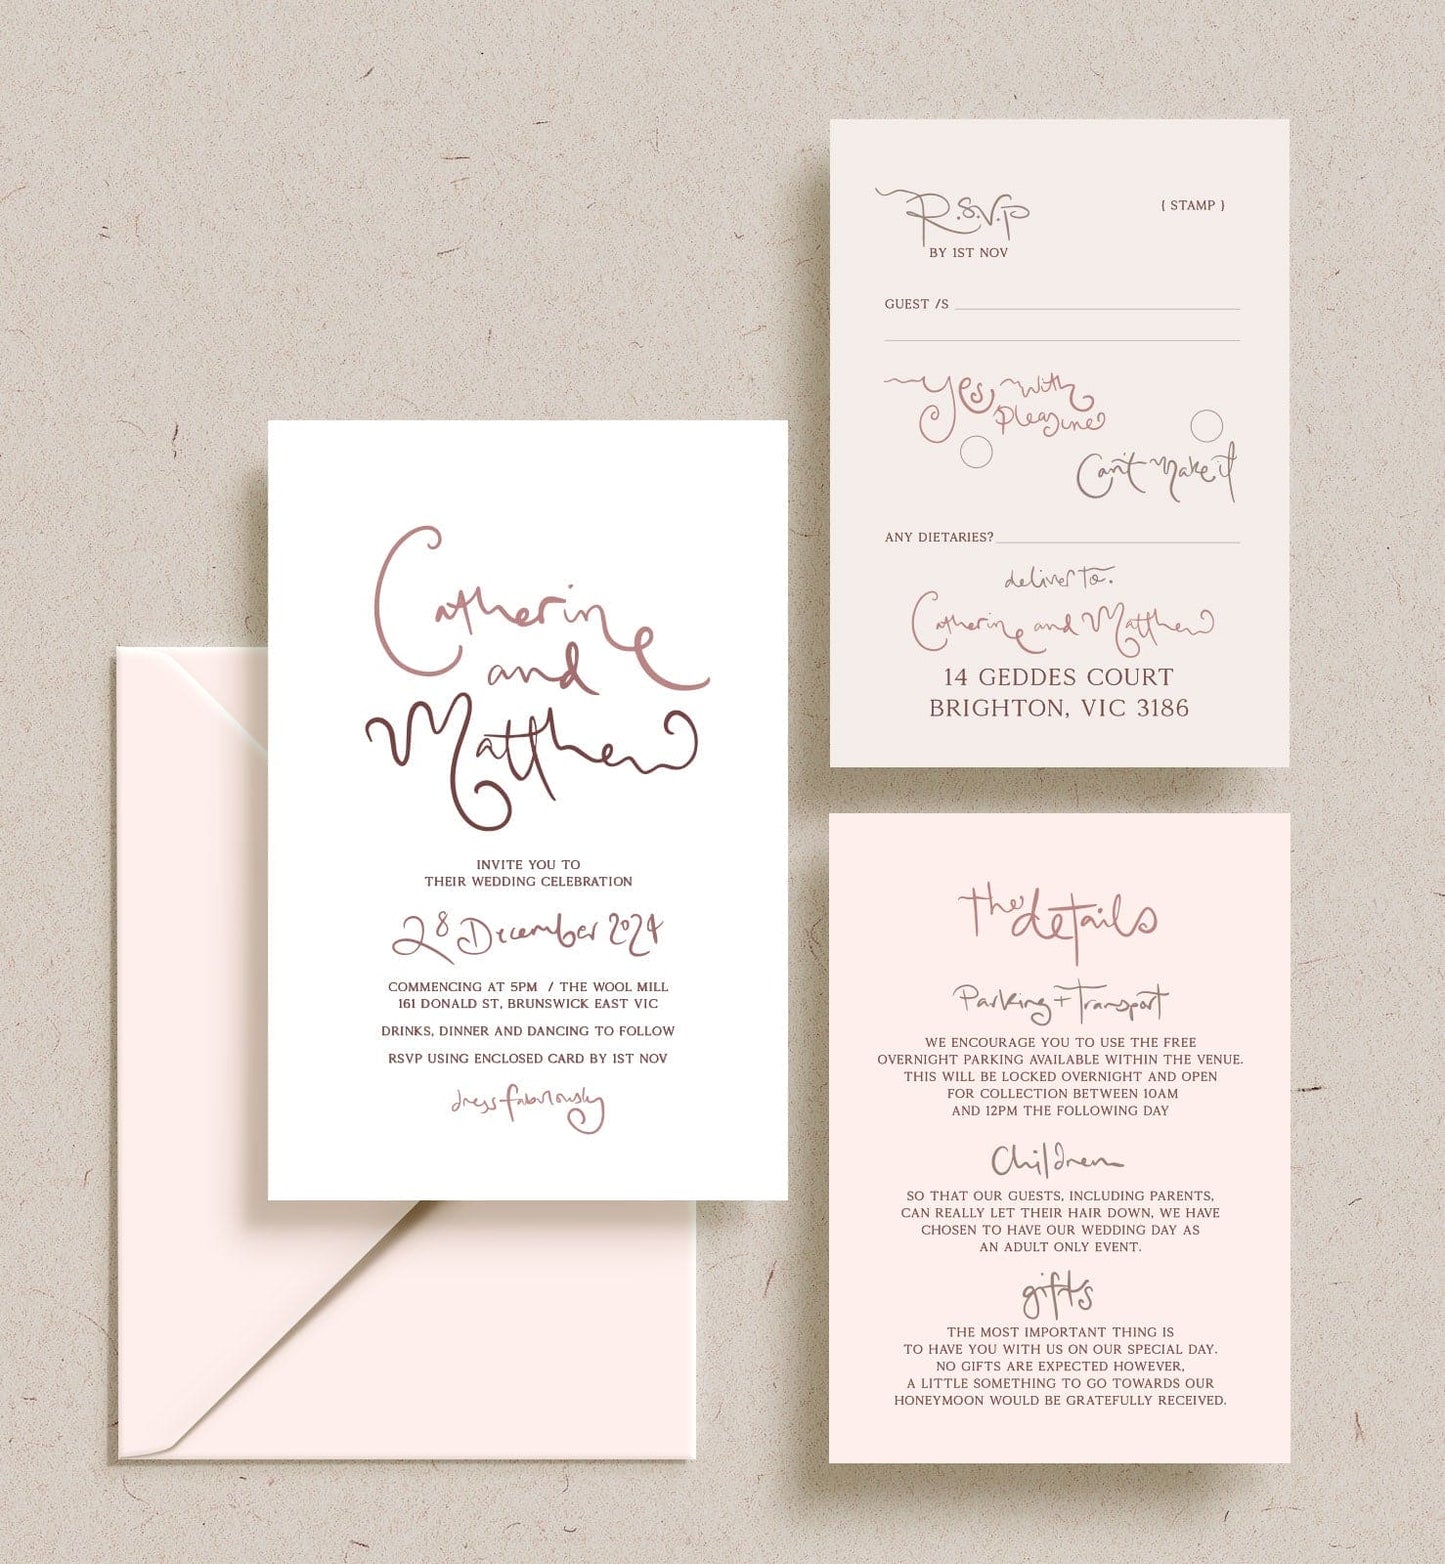 Catherine
and
Matthew
INVITE YOU TO
THEIR WEDDING CELEBRATION
28 December 2024
COMMENCING AT 5PM / THE WOOL MILL
161 DONALD ST, BRUNSWICK EAST VIC
DRINKS, DINNER AND DANCING TO FOLLOW
RSVP USING ENCLOSED CARD BY 1ST NOV
dress fabulously
R.S.V.P
{ STAMP }
BY 1ST NOV
GUEST /S
Yes, With
Pleasure
Can't Make it
ANY DIETARIES?
deliver to.
Catherine and Matthew
14 GEDDES COURT
BRIGHTON, VIC 3186
the details
Parking + Transport
WE ENCOURAGE YOU TO USE THE FREE
OVERNIGHT PARKING AVAILABLE WITHIN THE VENUE.
THIS WILL BE LOCKED OVERNIGHT AND OPEN
FOR COLLECTION BETWEEN 10AM
AND 12PM THE FOLLOWING DAY
Children
SO THAT OUR GUESTS, INCLUDING PARENTS,
CAN REALLY LET THEIR HAIR DOWN, WE HAVE
CHOSEN TO HAVE OUR WEDDING DAY AS
AN ADULT ONLY EVENT.
gifts
THE MOST IMPORTANT THING IS
TO HAVE YOU WITH US ON OUR SPECIAL DAY.
NO GIFTS ARE EXPECTED HOWEVER,
A LITTLE SOMETHING TO GO TOWARDS OUR
HONEYMOON WOULD BE GRATEFULLY RECEIVED.